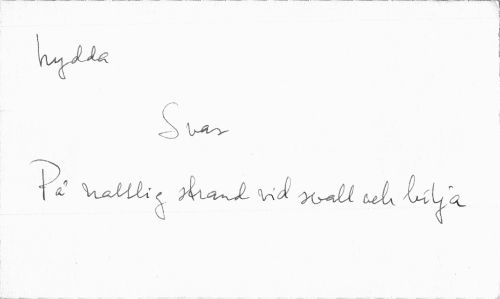 hydda
Svar
På nattlig strand vid svall och bölja